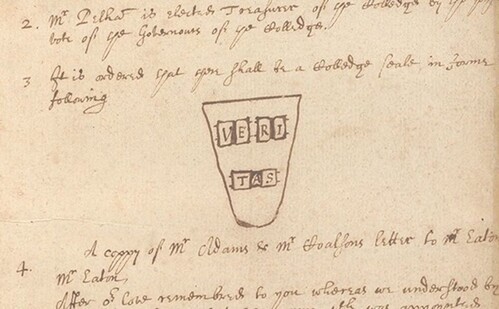 2. Mr Pelhā is elected Treasurer of ye Colledge by the joynt
vote of ye Governours of ye Colledge.
3 It is ordered that there shall be a Colledge seale in forme
following
VE RI
TAS
4. A coppy of Mr Adams & Mr Coalsons letter to Mr Eaton
Mr Eaton,
After or love remembred to you whereas we understood by
was appointed